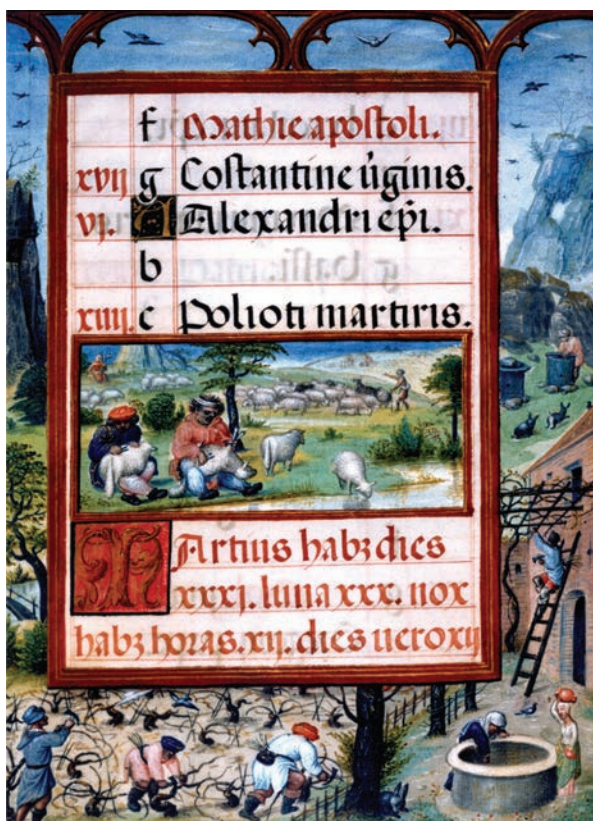 f Mathie apostoli.
xvij g Costantine v̄ginis.
vj. A Alexandri ep̄i.
b
xiiij. c Polioti martiris.
Martius habꝫ dies
xxxj. luna xxx. nox
habꝫ horas. xij. dies uero xij